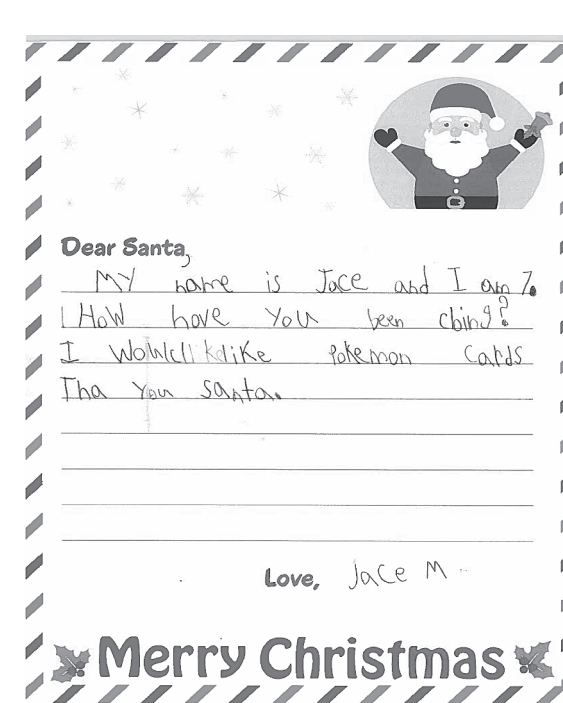 Dear Santa,
MY name is Jace and I am 7.
HoW have You been doing?
I Would like Pokemon Cards
Tha You Santa.
Love, Jace M
Merry Christmas